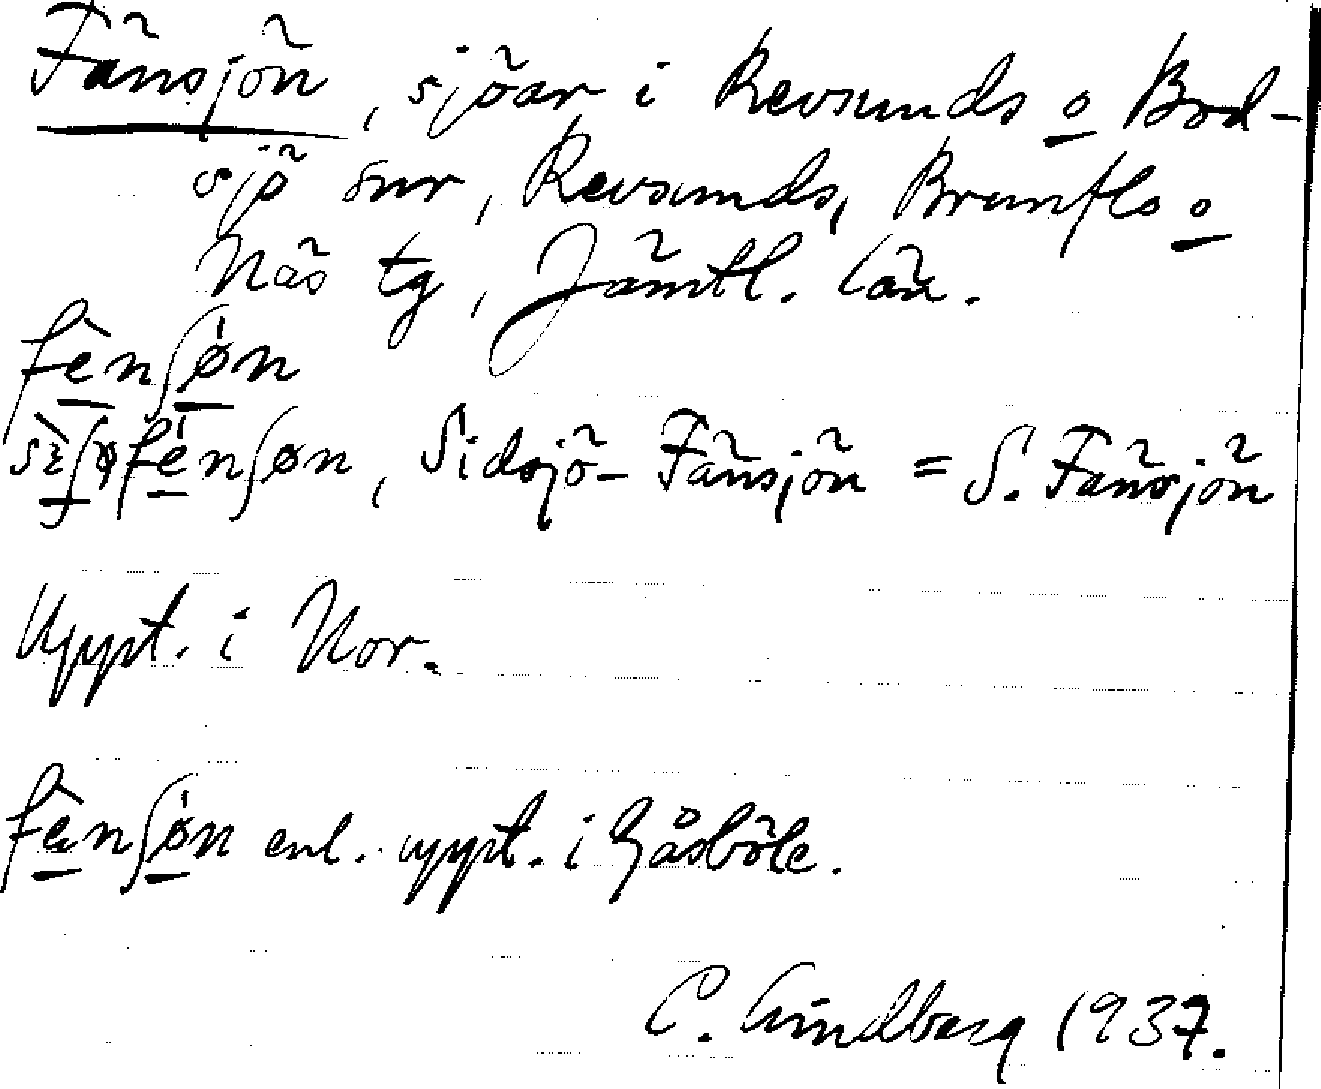 Fänsjön, sjöar i Revsunds o Bod-
sjö snr, Revsunds, Brunflo o
Näs tg, Jämtl. län.
fènʃø̍n
fénʃøn, Sidsjö-Fänsjön = S. Fänsjön
Uppt. i Nor.
fènʃø̍n enl. uppt. i Gåsböle.
C. Lindberg 1937.